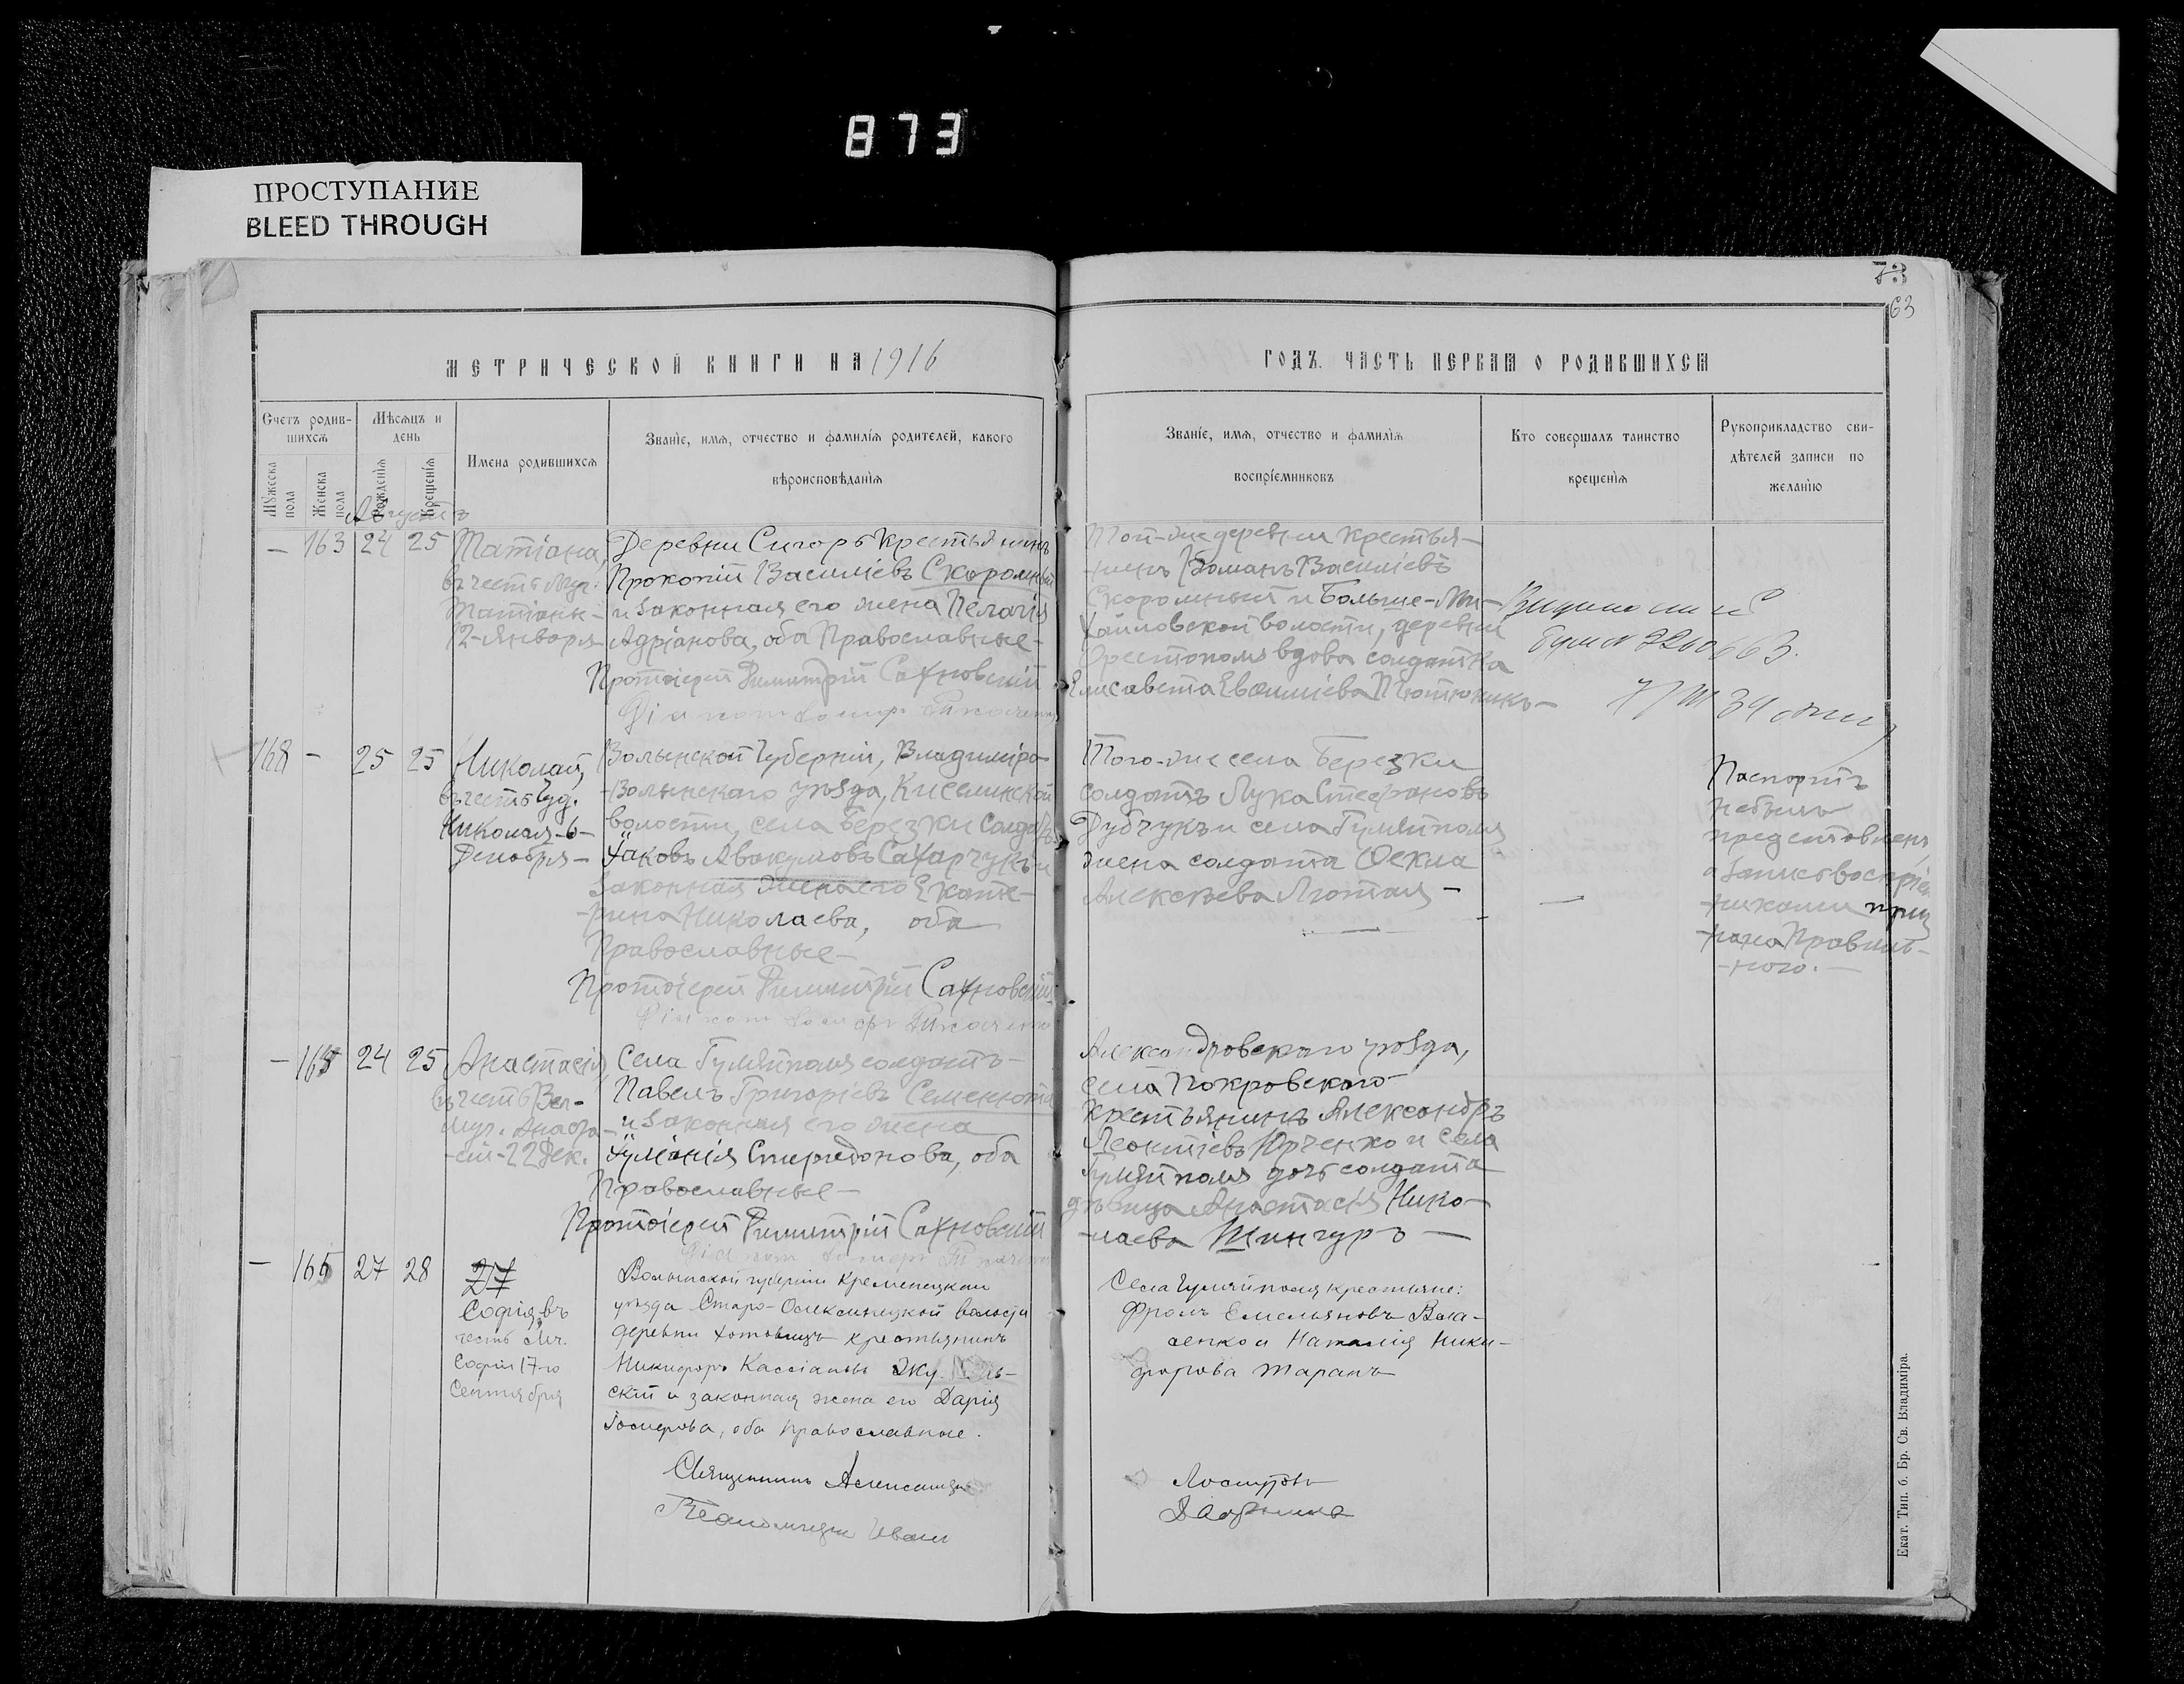 873
ПРОСТУПАНИЕ
BLEED THROUGH
73
63
МЕТРИЧЕСКОЙ КНИГИ НА 1916
ГОДЪ. ЧАСТЬ ПЕРВАЯ О РОДИВШИХСЯ
Счетъ родив-
шихся
Мужеска
пола
Женска
пола
Мѣсяцъ и
день
Рожденія
Крещенія
Имена родившихся
Званіе, имя, отчество и фамилія родителей, какого
вѣроисповѣданія
Званіе, имя, отчество и фамилія
воспріемниковъ
Кто совершалъ таинство
крещенія
Рукоприкладство сви-
дѣтелей записи по
желанію
Августъ
— 163 24 25
Татіана,
въ честь Муч.
Татіаны -
12-Января
Деревни Сигоръ крестьянинъ
Прокопій Василіевъ Скоромный
и законная его жена Пелагія
Адріанова, оба Православные -
Протоіерей Димитрій Сахновскій
Той-же деревни крестья-
-нинъ Романъ Василіевъ
Скоромный и Больше-Ми-
хайловской волости, деревни
Орестополя вдова солдатка
Елисавета Евѳиміева
168 — 25 25
Николай,
въ честь Чуд.
Николая-6-
Декабря -
Волынской Губерніи, Владиміро-
-Волынскаго уѣзда, Киселинской
волости, села Березки солдатъ
Іаковъ Авакумовъ Сахарчукъ и
Законная жена его Екате-
-рина Николаева, оба
Православные -
Протоіерей Димитрій Сахновскій
Того-же села Березки
солдатъ Лука Стефановъ
Дубчукъ и села Гуляйполя
жена солдата Ѳекла
Алексѣева Лютая -
Паспортъ
небылъ
представленъ,
а запись воспріем-
-никами приз
-нана Правиль-
-ного. -
— 165 24 25
Анастасія,
въ честь Вел-
муч. Анаста-
-сіи-22 Дек.
Села Гуляйполя солдатъ -
Павелъ Григоріевъ Семенюта
и законная его жена
Іуліанія Спиридонова, оба
Православные -
Протоіерей Димитрій Сахновскій
Александровскаго уѣзда,
села Покровскаго
крестьянинъ Александръ
Леонтіевъ Юрченко и села
Гуляйполя дочь солдата
дѣвица Анастасія Нико-
-лаева Шингуръ -
— 166 27 28
27
Софія, въ
честь Мч.
Софіи 17-го
Сентября
Волынской губерніи Кременецкаго
уѣзда Старо-Олексинецкой волости
деревни Хотовицъ крестьянинъ
Никифоръ Кассіановъ
скій и законная жена его Дарія
Іосифова, оба православные.
Священникъ Александръ
Села Гуляйполя крестьяне:
Фролъ Емельяновъ Вла-
сенко и Наталія Ники-
форова Таранъ
Екат. Тип. б. Бр. Св. Владиміра.